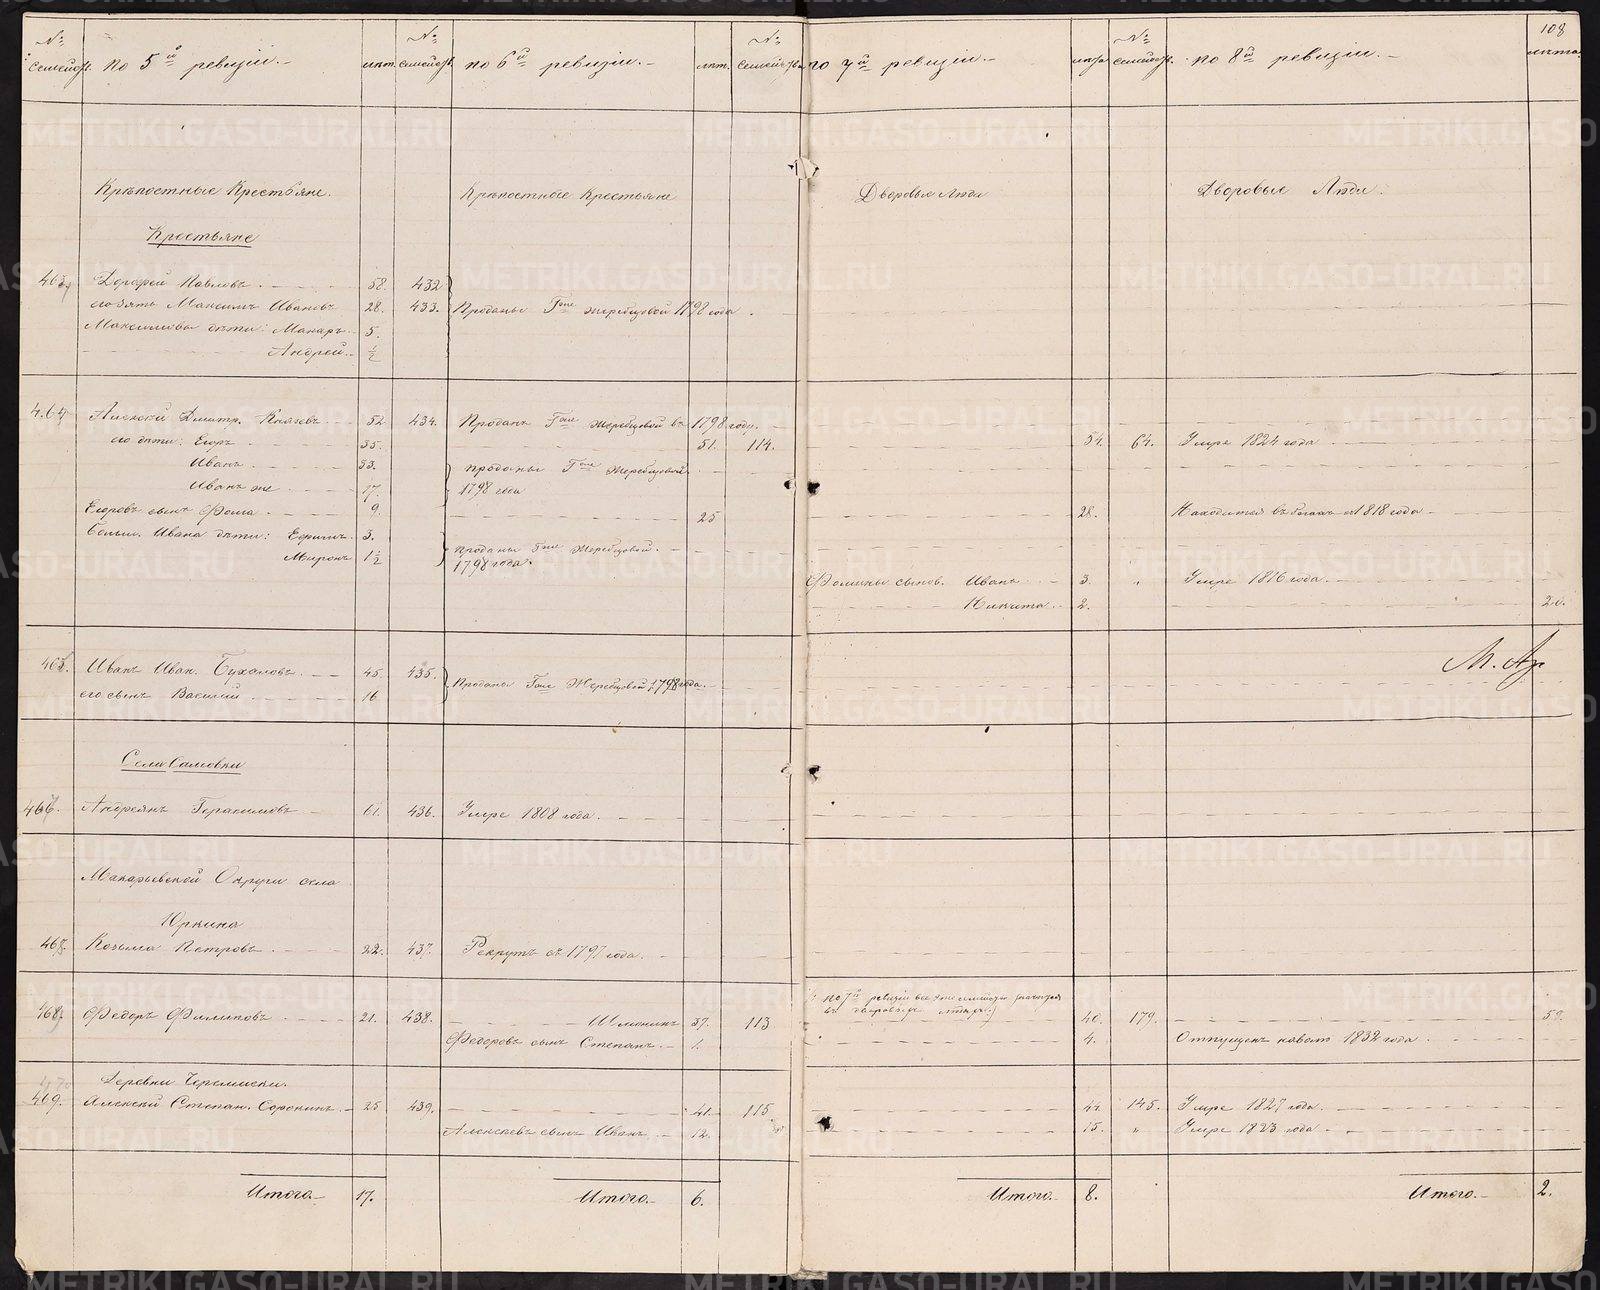 108
№ семейств. по 5й ревизіи.- лѣт. № семейств. по 6й ревизіи.- лѣт. № семейства по 7й ревизіи.- лѣта № семейств. по 8й ревизіи.- лѣта.
Крѣпостные Крестьяне. Крѣпостные Крестьяне Дворовые Люди Дворовые Люди.
Крестьяне
Павловъ 58. 432
его зять Максимъ Ивановъ 28. 433. Проданы Гже Жеребцовой 1798 года.
Максимовы дѣти: Макаръ 5.
Андрей 1/2
464 Алексѣй Дмитр. Князевъ 52. 434. Проданъ Гже Жеребцовой въ 1798 году.
его дѣти: Егоръ 35. 51. 114. 54. 64. Умре 1824 года
Иванъ 33. проданы Гже Жеребцовой
Иванъ же 17. 1798 года
Егоровъ сынъ Фома 9. 25 28. Находится въ бегахъ съ 1818 года
больш. Ивана дѣти: Ефимъ 3. проданы Гже Жеребцовой.
Миронъ 1 1/2 1798 года.
Фомины сынов. Иванъ 3. " Умре 1816 года.
Никита 2. 20.
465. Иванъ Иван. Бухаловъ 45. 435. Проданы Гже Жеребцовой 1798 года.
его сынъ Василий 16
Села Саловки
466. Андреянъ Герасимовъ 61. 436. Умре 1808 года.
Макарьевской Округи села
Юркина
467. Козьма Петровъ 22. 437. Рекрутъ съ 1797 года.
по 7й ревизіи все
468. Федоръ Филиповъ 21. 438. 37. 113 40. 179. 59.
Федоровъ сынъ Степанъ 1. 4. Отпущенъ наволю 1832 года.
470 Деревни Черемиски.
469. Алексѣй Степан. Сорокинъ. 25 439. 41. 115. 44. 145. Умре 1827 года.
Алексѣевъ сынъ Иванъ 12. 15. " Умре 1823 года.
Итого.- 17. Итого.- 6. Итого. 8. Итого.- 2.
METRIKI.GASO-URAL.RU